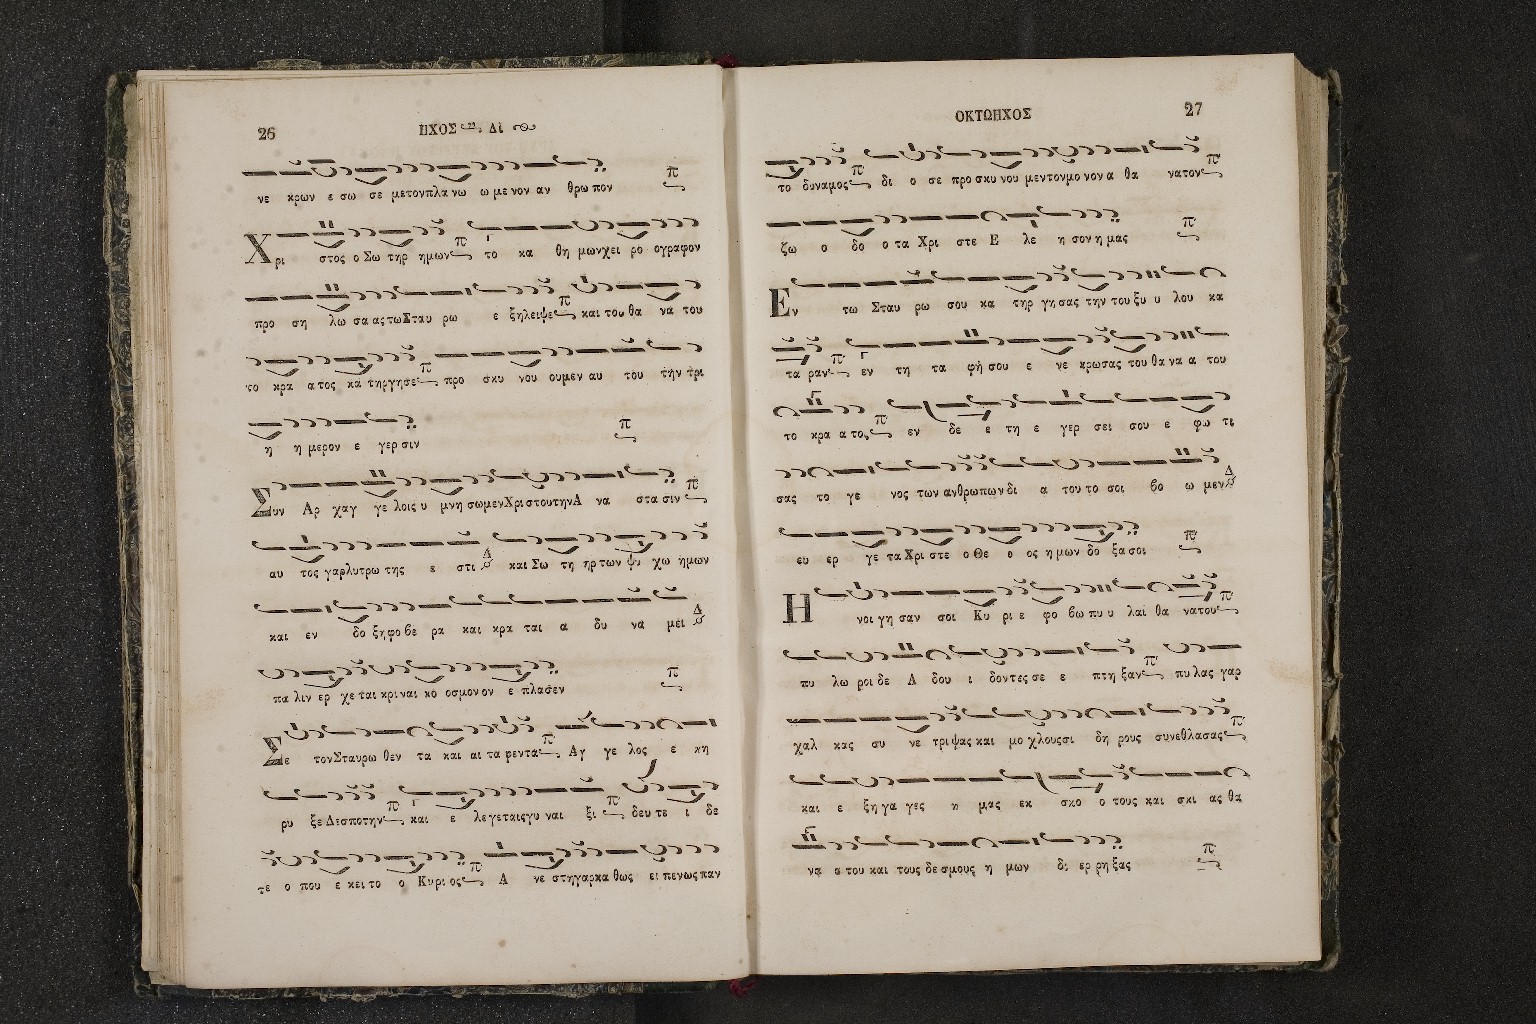 26
ΗΧΟΣ Δι
νε κρων ε σω σε μετονπλα νω ω με νον αν θρω πον
Χρι στος ο Σω τηρ ημων το κα θη μωνχει ρο ογραφον
προ ση λω σα ας τωΣταυ ρω ε ξηλειψε και του θα να του
το κρα ατος κα τηργησε προ σκυ νου ουμεν αυ του την τρι
η η μερον ε γερ σιν
Συν Αρ χαγ γε λοις υ μνη σωμενΧριστουτηνΑ να στα σιν
αυ τος γαρλυτρω της ε στι και Σω τη ηρ των ψυ χω ημων
και εν δο ξηφο βε ρα και κρα ται α δυ να μει
πα λιν ερ χε ται κριναι κο οσμον ον ε πλασεν
Σε τονΣταυρω θεν τα και αι τα φεντα Αγ γε λος ε κη
ρυ ξε Δεσποτην και ε λε γεταιςγυ ναι ξι δευ τε ι δε
τε ο που ε κει το ο Κυρι ος Α νε στηγαρκα θως ει πενως παν
ΟΚΤΩΗΧΟΣ
27
το δυναμος δι ο σε προ σκυ νου μεντονμο νον α θα νατον
ζω ο δο ο τα Χρι στε Ε λε η σον η μας
Εν τω Σταυ ρω σου κα τηρ γη σας την του ξυ υ λου κα
τα ραν εν τη τα φη σου ε νε κρωσας του θα να α του
το κρα α τος εν δε ε τη ε γερ σει σου ε φω τι
σας το γε νος των ανθρωπων δι α του το σοι βο ω μεν
ευ ερ γε τα Χρι στε ο Θε ο ος η μων δο ξα σοι
Η νοι γη σαν σοι Κυ ρι ε φο βω πυ υ λαι θα νατου
πυ λω ροι δε Α δου ι δοντες σε ε πτη ξαν πυ λας γαρ
χαλ κας συ νε τριψας και μο χλουςσι δη ρους συνεθλασας
και ε ξη γα γες η μας εκ σκο ο τους και σκι ας θα
να α του και τους δε σμους η μων δι ερ ρη ξας